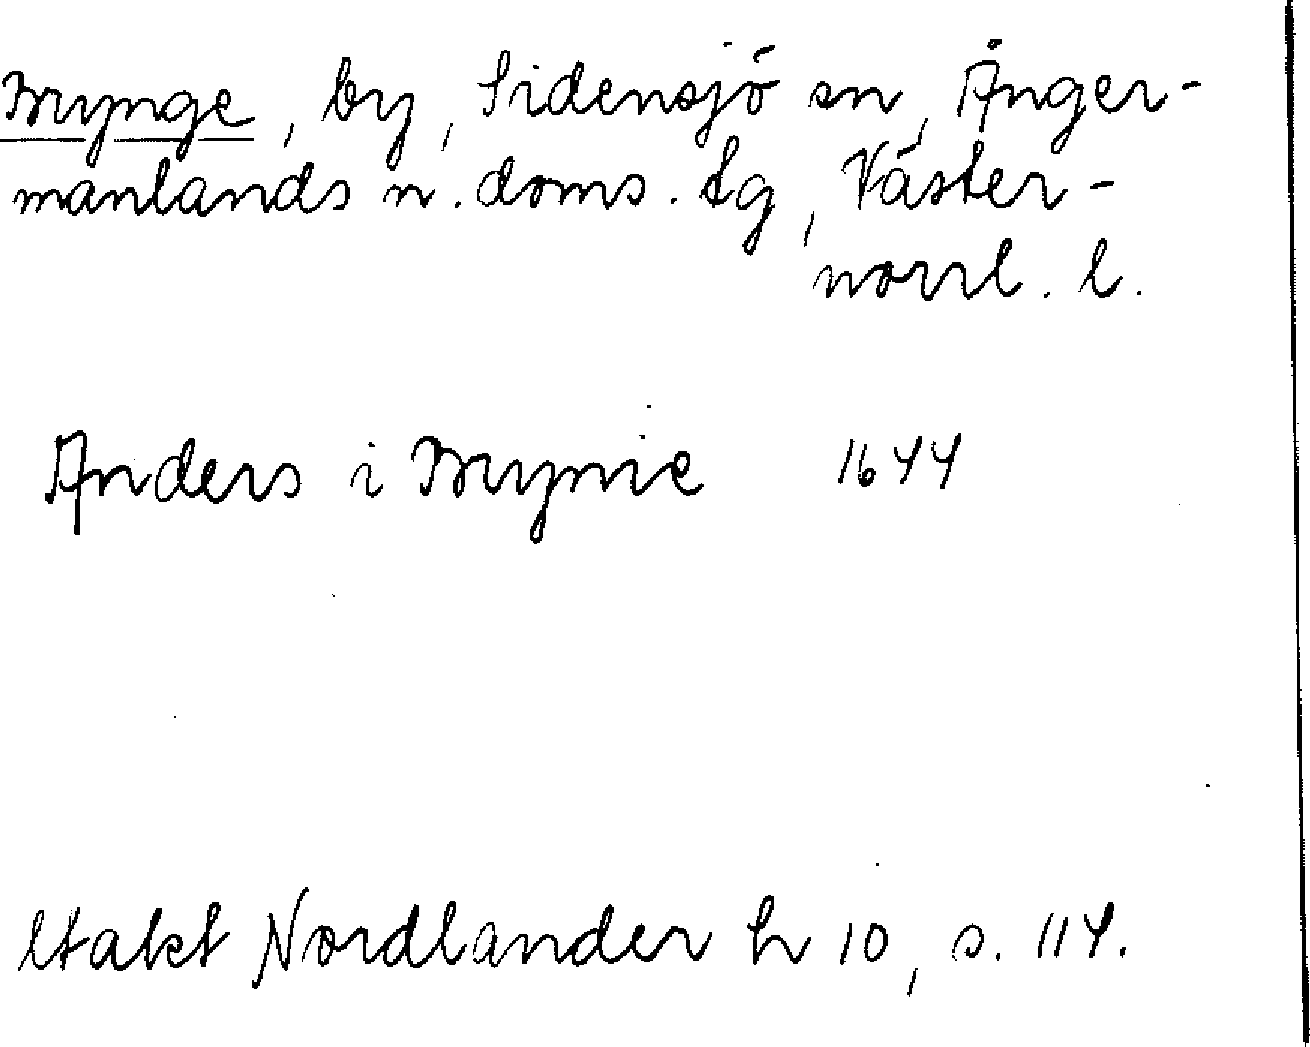 Brynge, by, Sidensjö sn, Ånger-
manlands n. doms. tg, Väster-
norrl. l.
Anders i Brynie 1644
Utakt Nordlander h 10, s. 114.